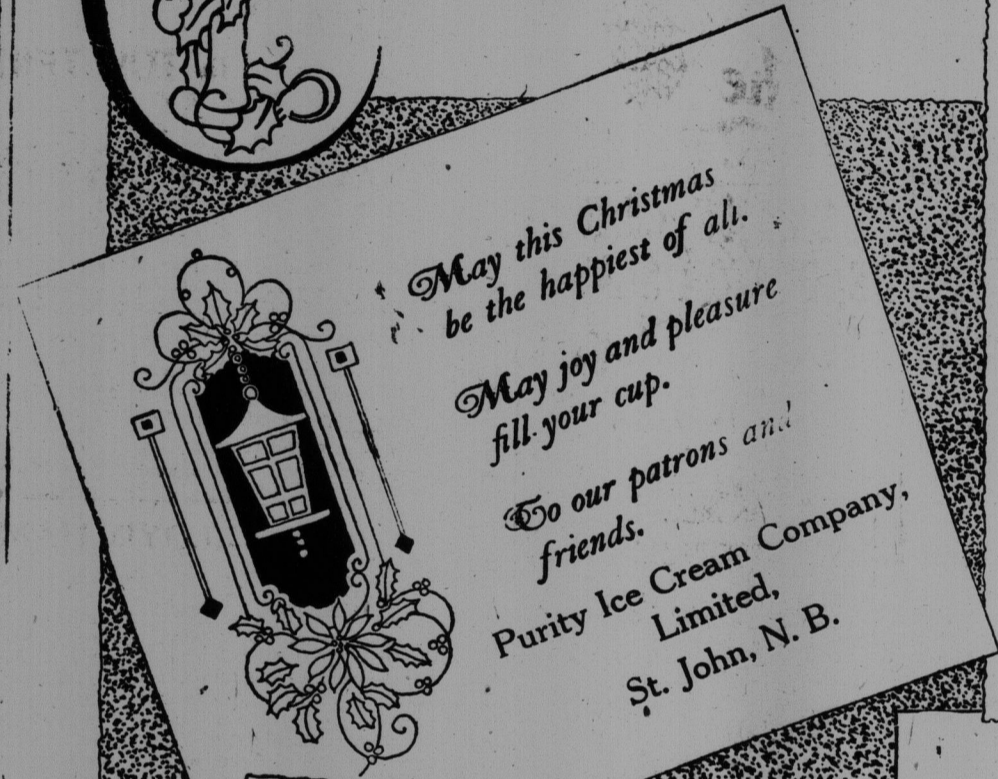 May this Christmas
be the happiest of all.
May joy and pleasure
fill your cup.
To our patrons and
friends.
Purity Ice Cream Company,
Limited,
St. John, N. B.